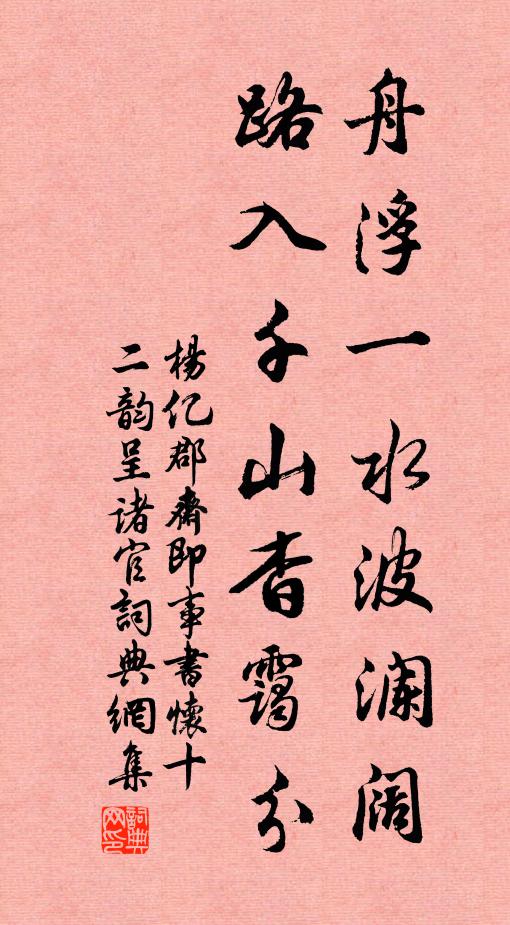 舟浮一水波澜阔
路入千山杳霭分
杨亿郡斋即事书怀十
二韵呈诸官詞典網集
詞典网印